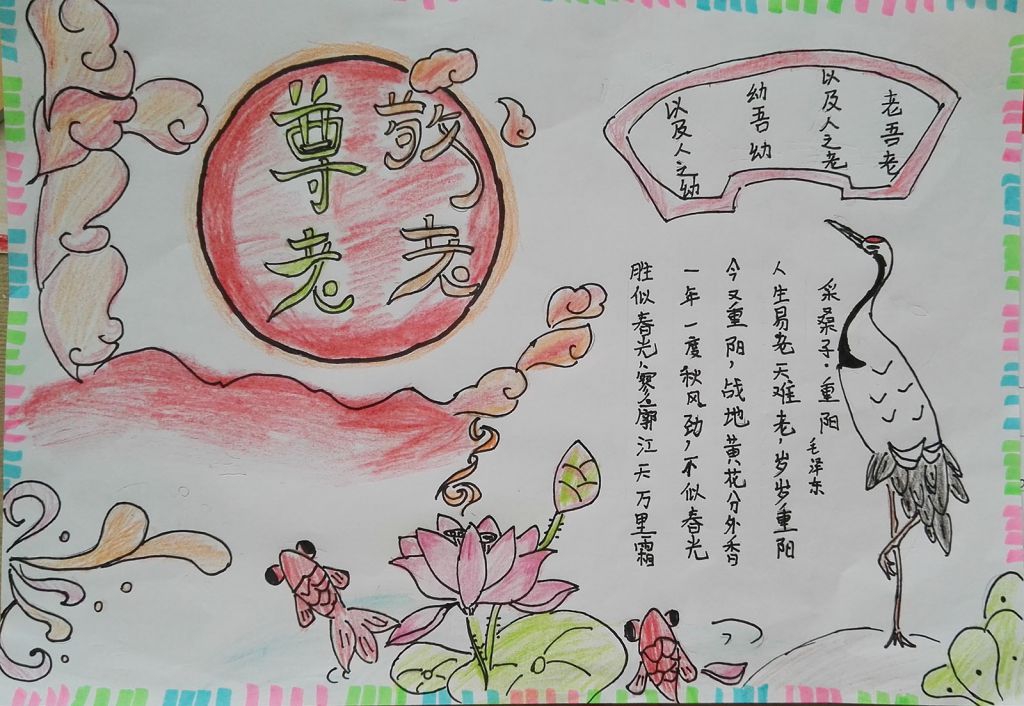 敬老
尊老
老吾老
以及人之老
幼吾幼
以及人之幼
采桑子·重阳
毛泽东
人生易老天难老，岁岁重阳
今又重阳，战地黄花分外香
一年一度秋风劲，不似春光
胜似春光，寥廓江天万里霜